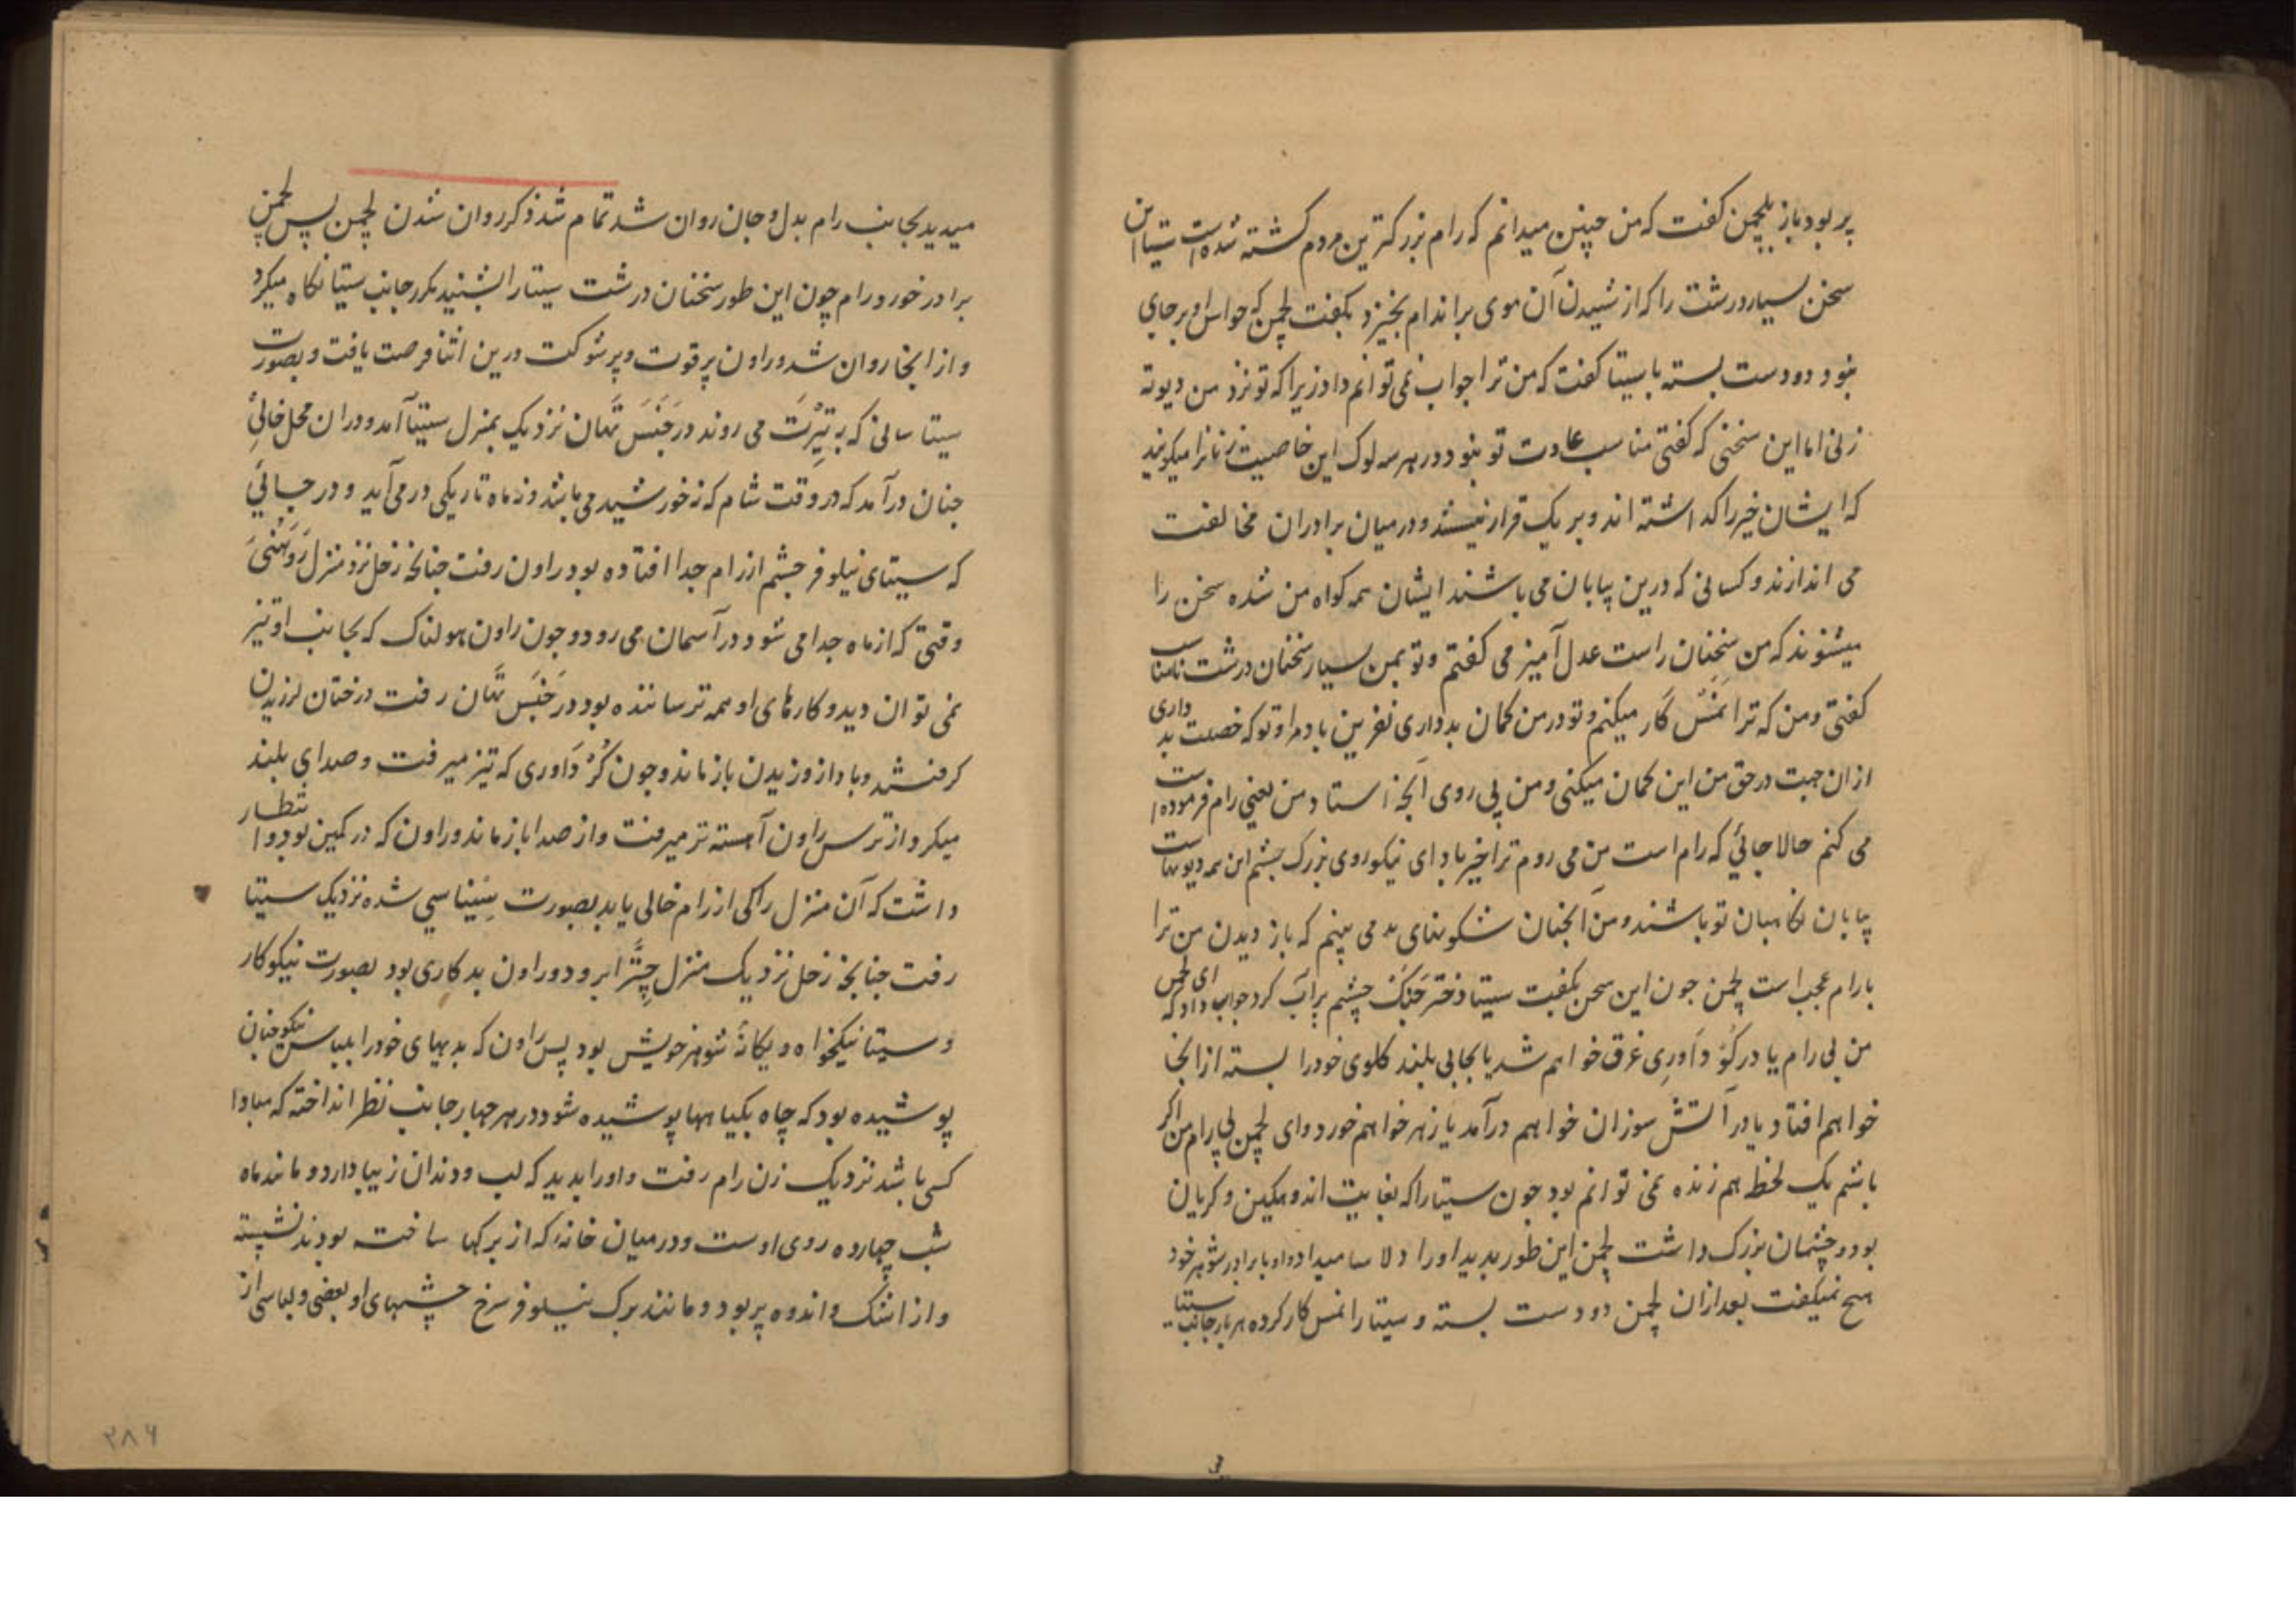 پر بود باز بلچمن گفت که من چنین میدانم که رام بزرگترین مردم کشته شده است سیتا این
سخن بسیار درشت را که از شنیدن آن موی بر اندام بخیزد بگفت لچمن که حواس او برجای
نبود دو دست بسته با سیتا گفت که من ترا جواب نمی توانم داد زیرا که تو نزد من دیوته
زنی اما این سخنی که گفتی مناسب عادت تو نبود و در هر سه لوک این خاصیت زنانرا میگویند
که ایشان خیر را گذاشته اند و بر یک قرار نیستند و در میان برادران مخالفت
می اندازند و کسانی که درین بیابان می باشند ایشان همه گواه من شده سخن را
میشنوند که من سخنان راست عدل آمیز می گفتم و تو بمن بسیار سخنان درشت نامناسب
گفتی و من که ترا نمس کار میکنم و تو در من گمان بد داری نفرین باد مرا و تو که خصلت بد داری
ازان جهت در حق من این گمان میکنی و من پی روی آنچه استاد من یعنی رام فرموده است
می کنم حالا جائی که رام است من می روم ترا خیر باد ای نیکو روی بزرگ چشم این همه دیوتهاست
بیابان نگاهبان تو باشند و من آنچنان شگونهای بد می بینم که باز دیدن من ترا
با رام عجب است لچمن چون این سخن بگفت سیتا دختر جنک چشم پر آب کرد جواب داد که ای لچمن
من بی رام یا در گو داوری غرق خواهم شد یا بجای بلند گلوی خود را بسته از انجا
خواهم افتاد یا در آتش سوزان خواهم درآمد یا زهر خواهم خورد و ای لچمن بی رام من اگر
باشم یک لحظه هم زنده نمی توانم بود چون سیتا را که بغایت اندوهگین و گریان
بود و چشمان بزرگ داشت لچمن این طور بدید او را دلاسا میداد و او با برادر شوهر خود
هیچ نمیگفت بعد ازان لچمن دو دست بسته و سیتا را نمس کار کرده هر بار جانب سیتا
میدید بجانب رام بدل و جان روان شد تمام شد ذکر روان شدن لچمن پس لچمن
برادر خورد رام چون این طور سخنان درشت سیتا را بشنید مکرر جانب سیتا نگاه میکرد
و از انجا روان شد و راون پر قوت و پر شوکت درین اثنا فرصت یافت و بصورت
سیتا سانی که به تیرت می روند در جنس تهان نزدیک بمنزل سیتا آمد و دران محل خالی
چنان درآمد که در وقت شام که نه خورشید می باشد و نه ماه تاریکی در می آید و در جائی
که سیتای نیلوفر چشم از رام جدا افتاده بود راون رفت چنانچه زحل نزد منزل روهنی
وقتی که از ماه جدا می شود در آسمان می رود و چون راون هولناک که بجانب او تیز
نمی توان دید و کارهای او همه ترساننده بود در جنس تهان رفت درختان لرزیدن
گرفتند و باد از وزیدن باز ماند و چون گو داوری که تیز میرفت و صدای بلند
میکرد از ترس راون آهسته تر میرفت و از صدا باز ماند و راون که در کمین بود و انتظار
داشت که آن منزل را کی از رام خالی یابد بصورت سنیاسی شده نزدیک سیتا
رفت چنانچه زحل نزدیک منزل چترا برود و راون بد کاری بود بصورت نیکوکار
و سیتا نیکخواه و یگانه شوهر خویش بود پس راون که بدیهای خود را بلباس نیکو چنان
پوشیده بود که چاه بگیاهها پوشیده شود در هر چهار جانب نظر انداخته که مبادا
کسی باشد نزدیک زن رام رفت و او را بدید که لب و دندان زیبا دارد و مانند ماه
شب چهارده روی اوست و در میان خانه که از برگها ساخته بودند نشسته
و از اشک و اندوه پر بود و مانند برگ نیلوفر سرخ چشمهای او بعضی و لباسی از
۳۸۶